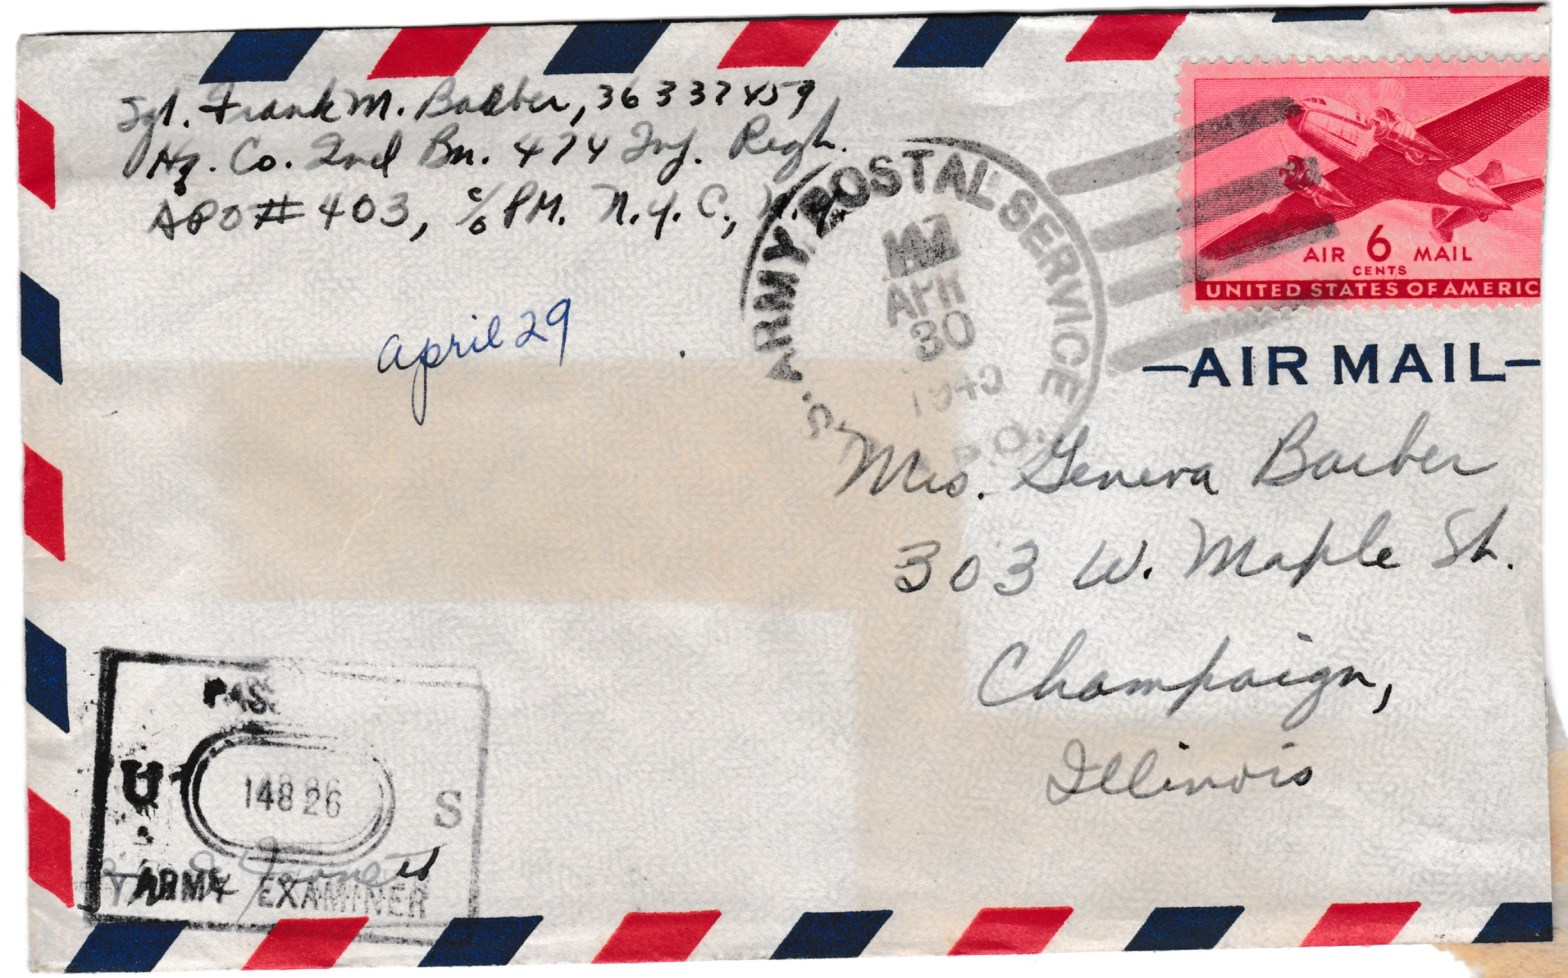 Sgt. Frank M. Barber, 36337459
Hq. Co. 2nd Bn. 474 Inf. Regt.
APO # 403, c/o PM. N.Y.C., N.
April 29
U.S. ARMY POSTAL SERVICE
APR
30
194
A.P.O.
AIR 6 MAIL
CENTS
UNITED STATES OF AMERIC
—AIR MAIL—
Mrs. Geneva Barber
303 W. Maple St.
Champaign,
Illinois
PAS
U S
14826
ARMY EXAMINER